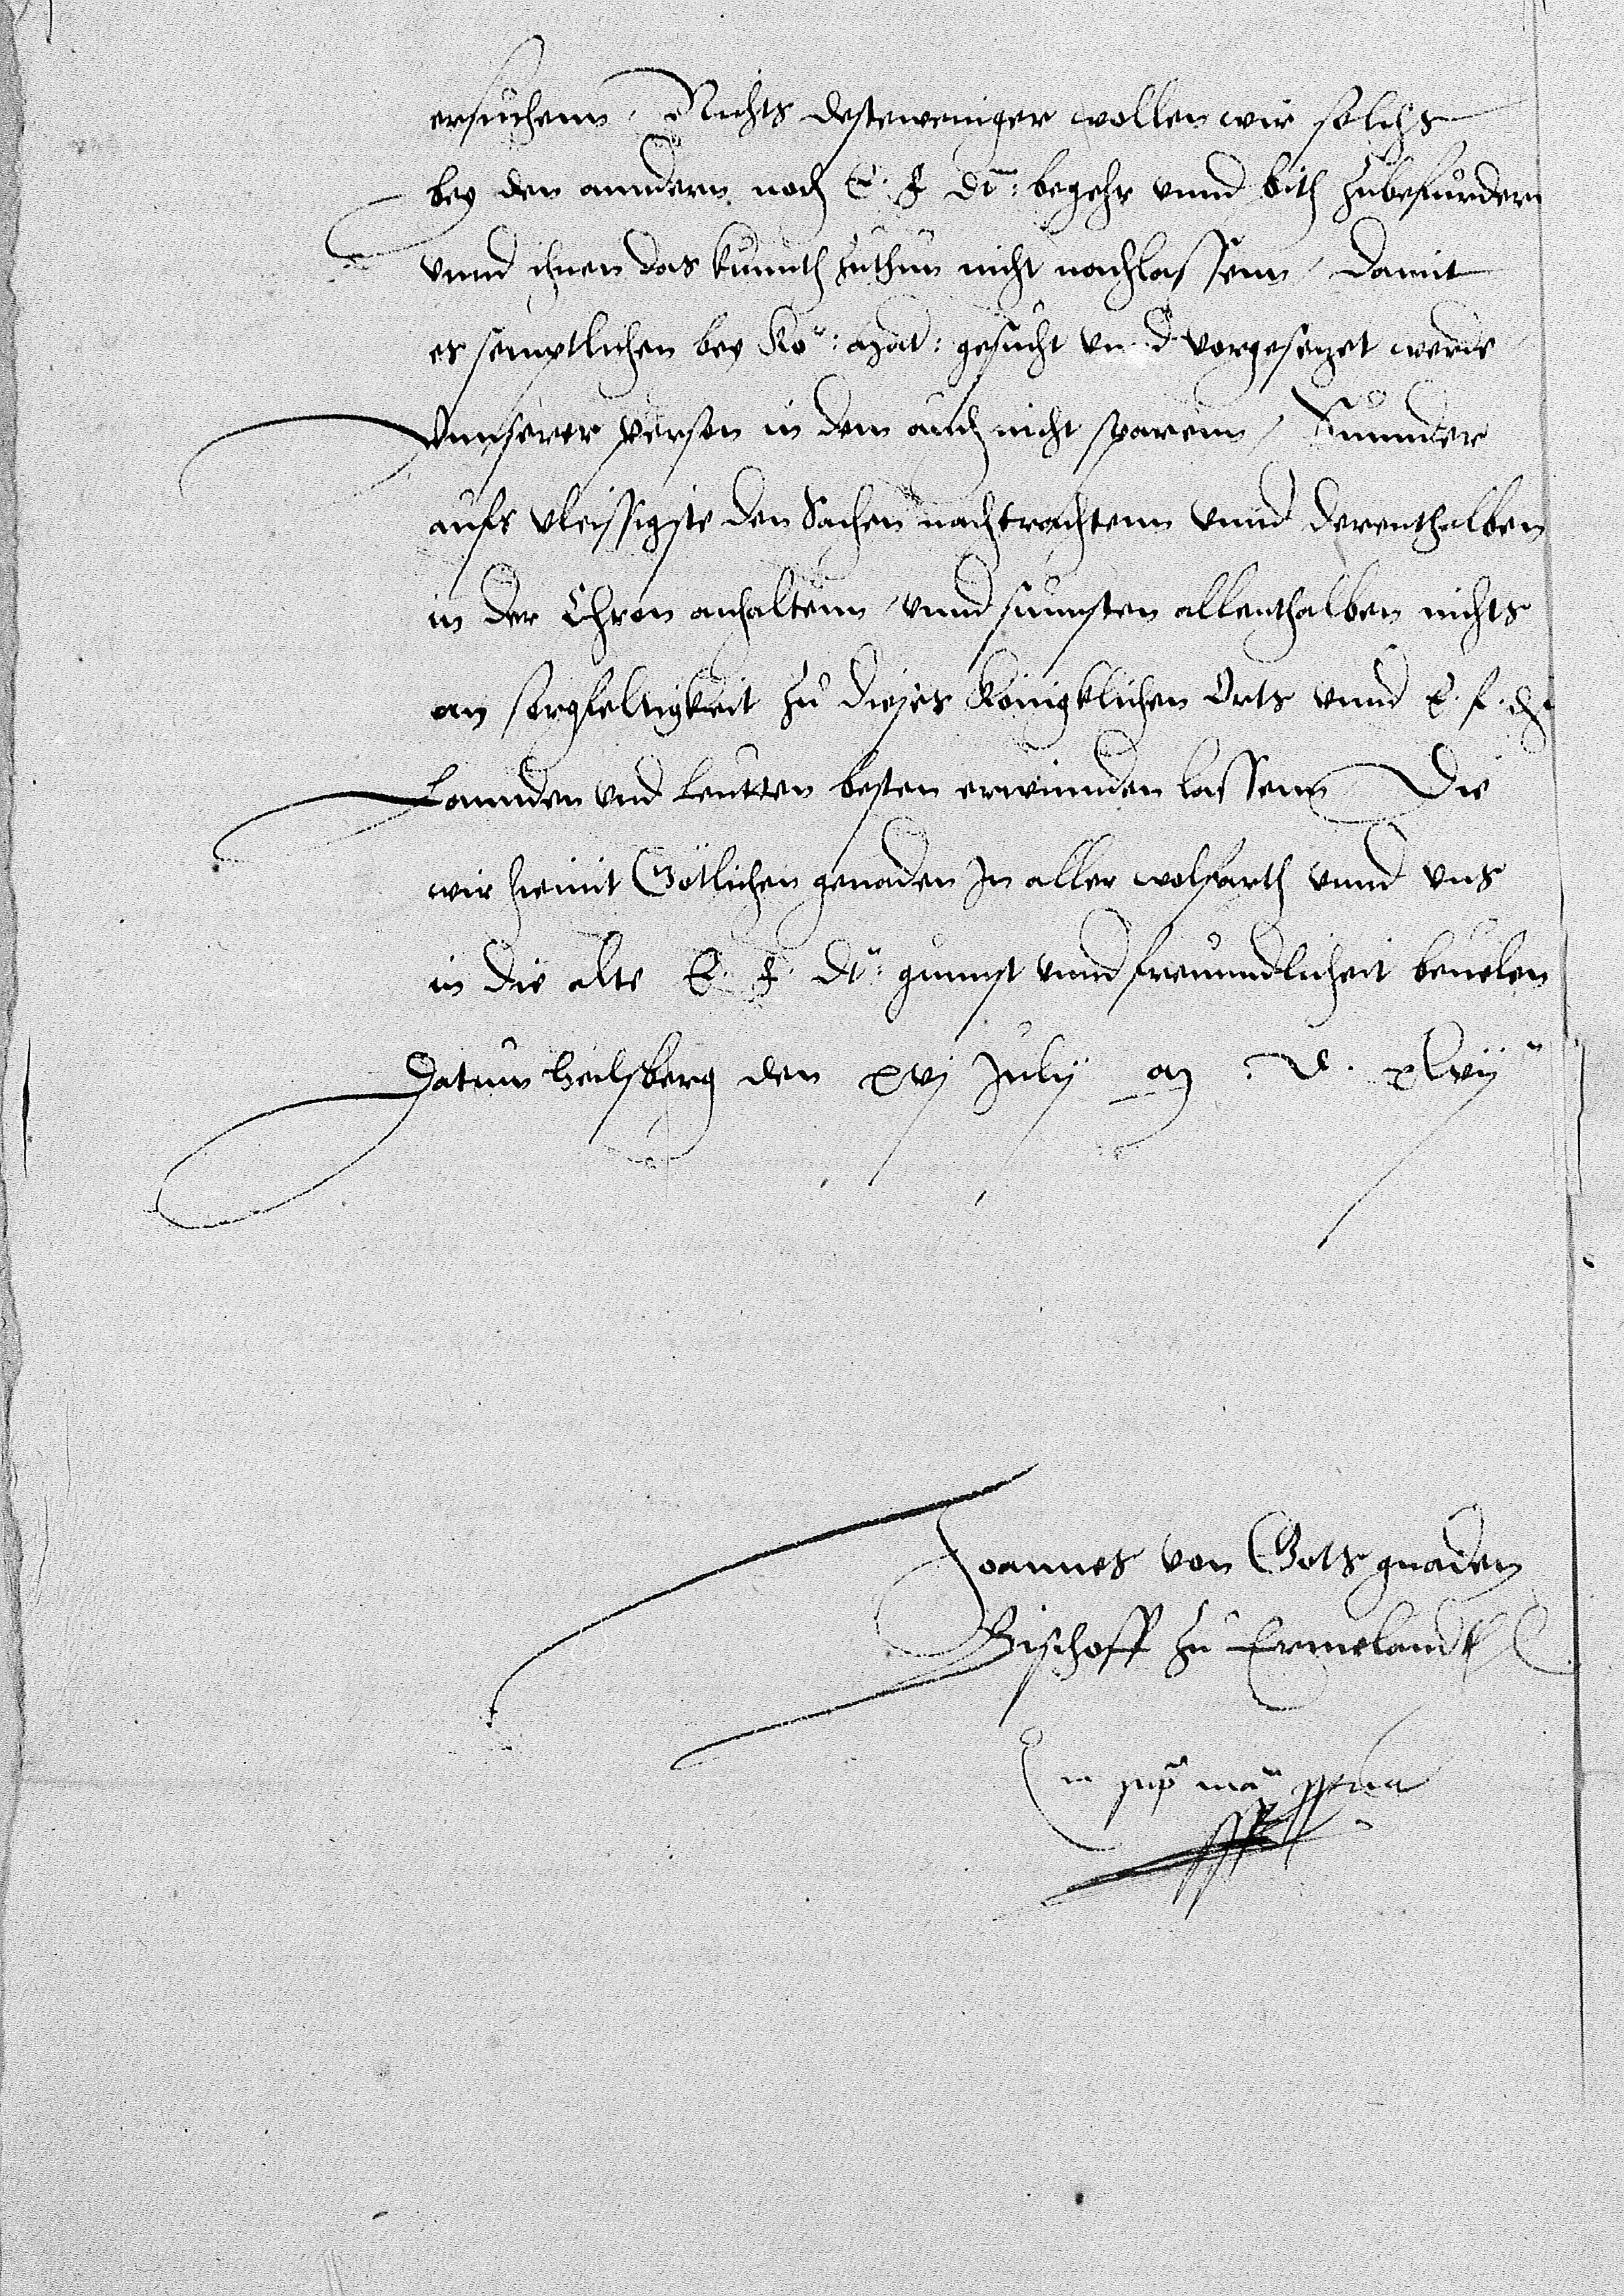 ersuchenn, Nichts desteweniger wollen wir solchs
bey den anndern nach E. F. Dt: begehr vnnd bith zubefurdern
vnnd ihnen das kunnth zuthun nicht nachlassenn, damit
es semptlichen bey Ko: Mat: gesucht vnnd vorgesetzet werde,
Vnnserer person in dem auch nicht sparenn, Sunnder
aufs vleissigste den Sachen nachtrachtenn vnnd derenthalben
in der Chron anhaltenn, vnnd sunnsten allenthalben nichts
an sorgfeltigkeit zu dieses Königklichen Orts vnnd E. f. dt
Lannden vnd leutten besten erwinnden lassenn Die
wir hiemit Götlichen genaden In aller wolfarth vnnd vns
in die alte E. F. Dt: gunnst vnnd freuundlicheit beuelen
Datum heilsberg den xvj Julij M. D. xlvij
Joannes von Gots gnaden
Bischoff zu Ermelandt